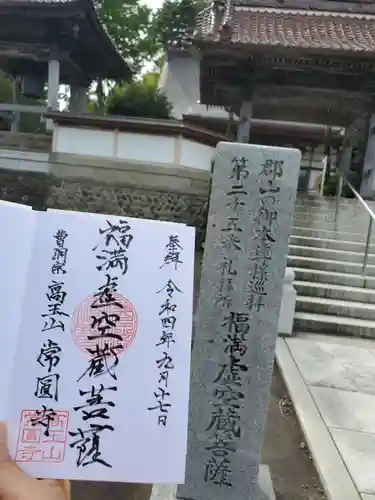 奉拝
令和四年九月十七日
福満虚空蔵菩薩
曹洞宗
高玉山
常圓寺
郡山の御本尊様巡拝
第二十五番札所
福満虚空蔵菩薩